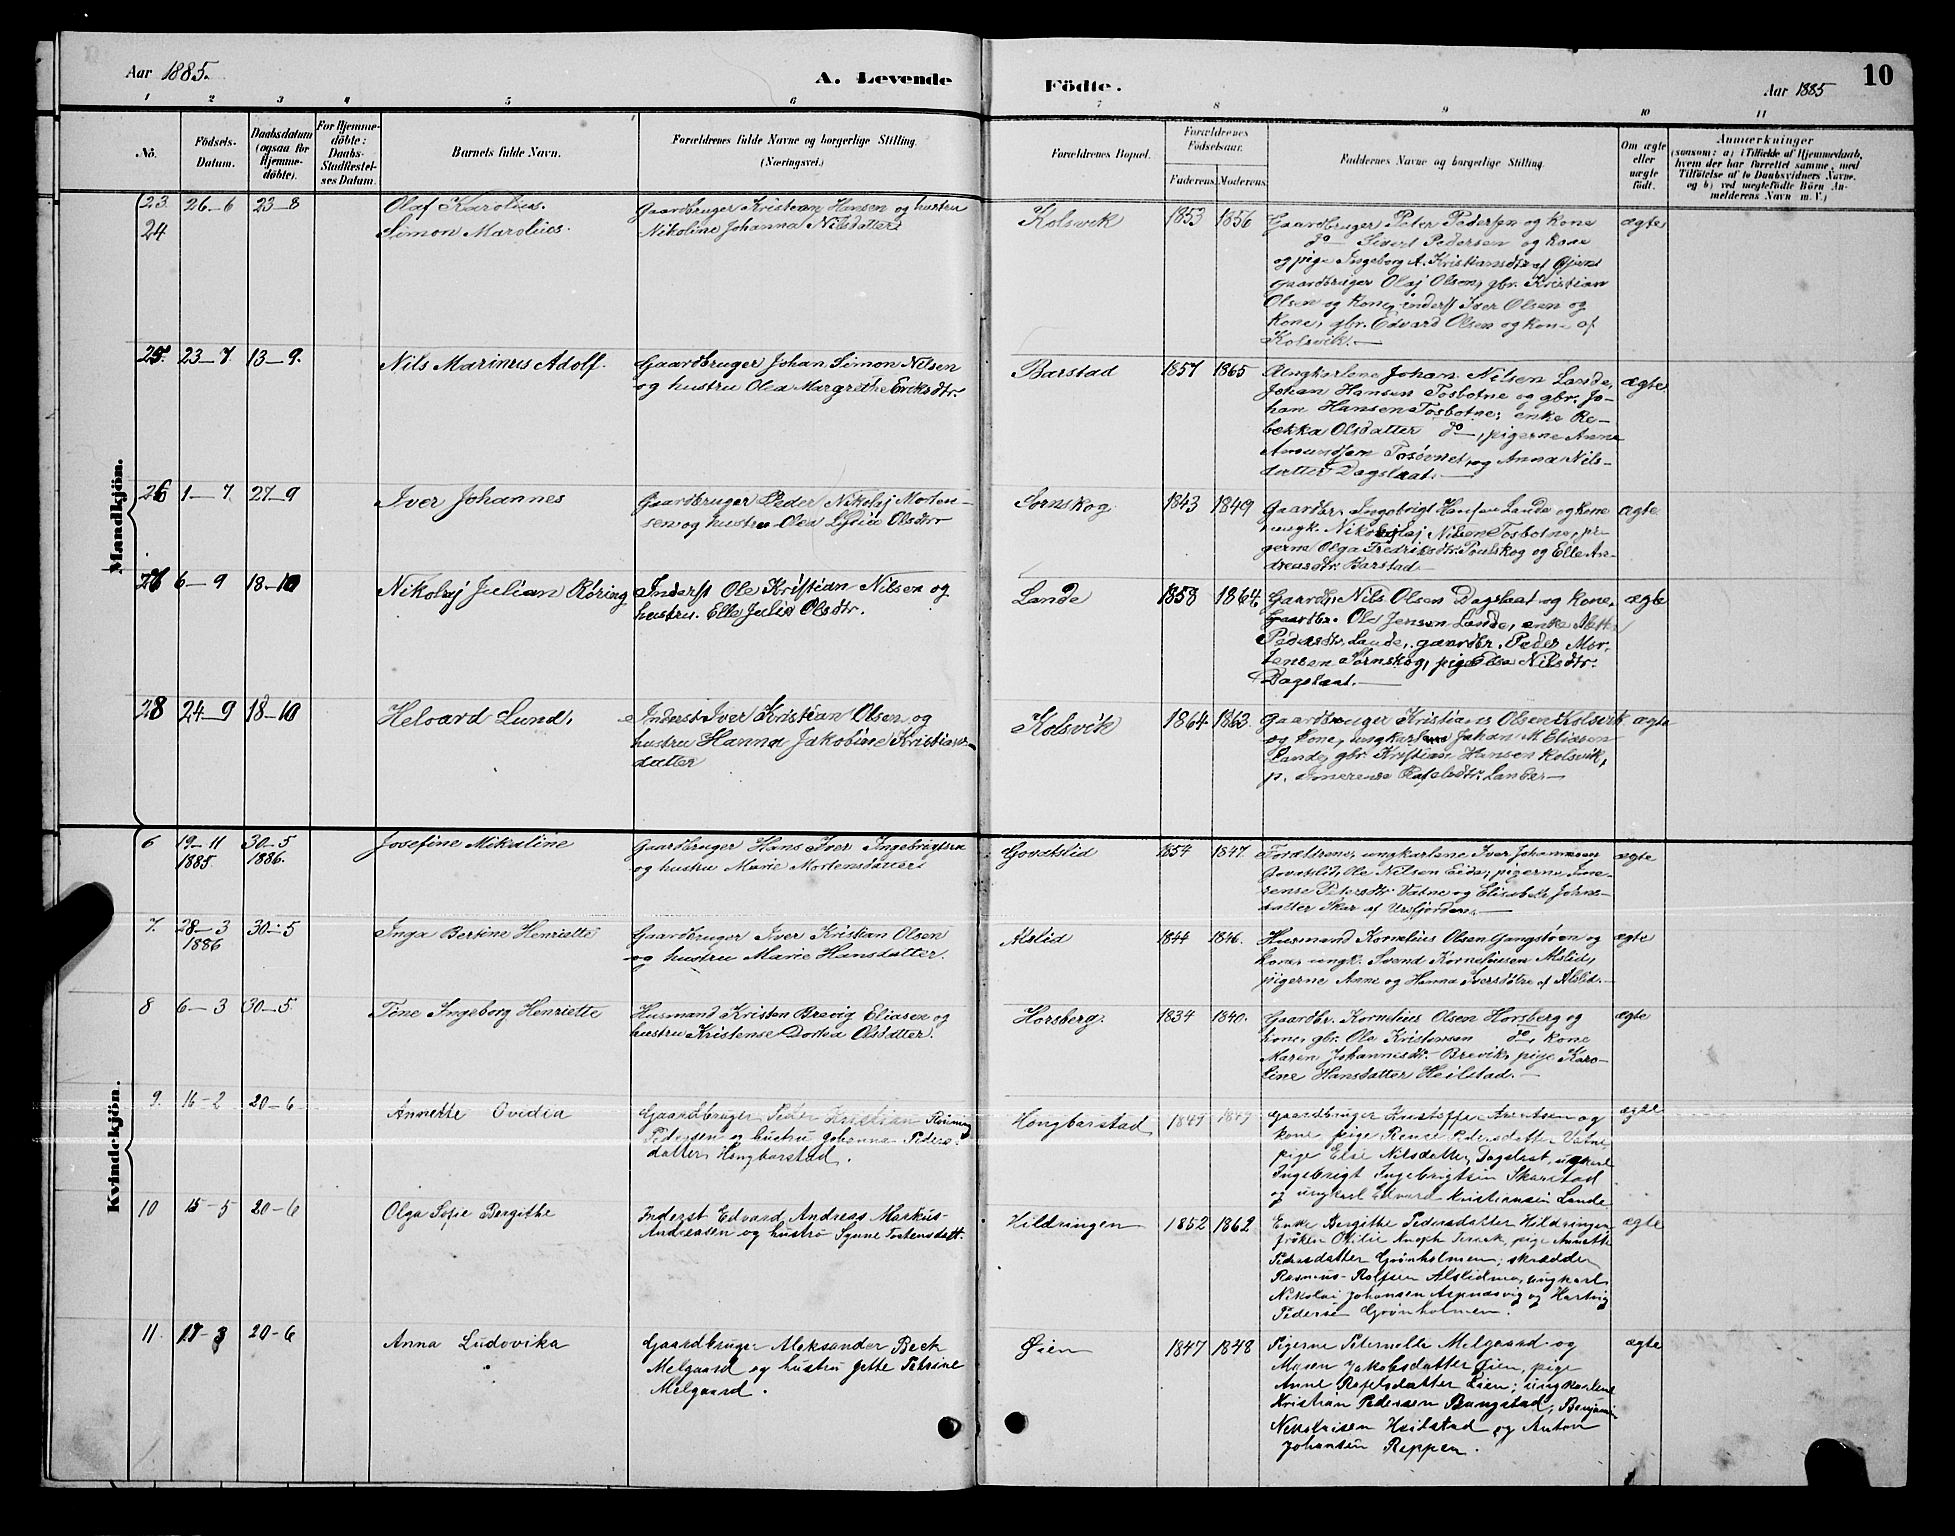 Aar 1885.
A. Levende
Födte.
Aar 1885
10
1 2 3 4 5 6 7 8 9 10 11
No.
Födsels-
Datum.
Daabsdatum
(ogsaa for
Hjemme-
döbte).
For Hjemme-
döbte:
Daabs-
Stadfæstel-
ses Datum.
Barnets fulde Navn.
Forældrenes fulde Navne og borgerlige Stilling.
(Næringsvei.)
Forældrenes Bopæl.
Forældrenes
Födselsaar.
Faderens. Moderens.
Faddernes Navne og borgerlige Stilling.
Om ægte
eller
uægte
født.
Anmærkninger
(saasom: a) i Tilfælde af Hjemmedaab,
hvem der har forrettet samme, med
Tilföielse af to Daabsvidners Navne,
og b) ved uægtefödte Börn An-
melderens Navn m. V.)
Mandkjön.
23. 26-6 23-8
Olaf Karolius.
Gaardbruger Kristian Hansen og hustru
24
Simon Marolius.
Nikoline Johanna Nilsdatter
Kolsvik 1853 1856
Gaardbruger Peter Pedersen og kone
do Sivert Pedersen og kone
og pige Ingeborg A. Kristiansdtr af
Gaardbruger Olaj Olsen, gbr. Kristian
Olsen og kone, inderst Iver Olsen og
kone, gbr. Edvard Olsen og kone af
Kolsvik.
ægte
25. 23-7 13-9.
Nils Marinus Adolf.
Gaardbruger Johan Simon Nilsen
og hustru Olea Margrethe Eriksdtr.
Barstad 1857 1865
Ungkarlene Johan Nilsen Lande,
Johan Hansen Tosbotne og gbr. Jo-
han Hansen Tosbotne; enke Re-
bekka Olsdatter do, pigerne Anne
Amundsen og Anna Nils-
datter Dagslaat.
ægte
26 1-7 27-9
Iver Johannes
Gaardbruger Peder Nikolaj Morten-
sen og hustru Olea Lydia Olsdtr
Sornskog 1843 1849
Gaardbr. Ingebrigt Hansen Lande og kone
ungk. Nikolaj Nilsen Tosbotne, pi-
gerne Olga Fredriksdtr. og Elle An-
dreasdtr. Barstad
ægte
27 6-9 18-10
Nikolaj Julian Röring
Inderst Ole Kristian Nilsen og
hustru. Elle Julie Olsdtr.
Lande 1858 1864
Gaardb. Nils Olsen Dagslaat og kone,
Gaardbr. Ole Jensen Lande, enke
Pedersdtr. Lande, gaardbr. Peder Mor-
tensen Sørnskog, pige Elsa Nilsdtr.
Dagslaat.
ægte
28 24-9 18-10
Helvard Lund.
Inderst Iver Kristian Olsen og
hustru Hanna Jakobine Kristians-
datter
Kolsvik 1864 1863.
Gaardbruger Kristians Olsen Kolsvik
og kone, ungkarl Johan M. Eliasen
Lande, gbr. Kristian Hansen Kolsvik,
p. Rafelsdtr. Lande
ægte
Kvindekjön.
6 19-11 1885. 30-5 1886.
Josefine Mikaline
Gaardbruger Hans Iver Ingebrigtsen
og hustru Marie Mortensdatter
Godtslid 1854 1847.
Forældrene, ungkarlene Iver Johannesen
Godtslid, Ole Nilsen Eide, pigerne Ime-
rense Petersdtr. Vatne og Elisabeth Johns-
datter Skar af Ursfjorden.
ægte
7. 28-3 1886 30-5
Inga Bertine Henriette
Gaardbruger Iver Kristian Olsen
og hustru Marie Hansdatter.
Alslid 1844 1846.
Husmand Kornelius Olsen Gangstøen og
kone, ungk. Svend Korneliusen Alslid,
pigerne Anne og Hanna Iversdøtre af Alslid.
ægte
8 6-3 30-5.
Tine Ingeborg Henriette
Husmand Kristen Brevig Eliasen og
hustru Kristense Dorthea Olsdatter.
Horsberg. 1834 1840.
Gaardbr. Kornelius Olsen Horsberg og
kone, gbr. Ole Kristensen do, kone
Maren Johannesdtr. Brevik, pige Karo-
line Hansdatter Heilstad.
ægte
9. 16-2 20-6
Annette Ovidia
Gaardbruger Peder Kristian
Pedersen og hustru Johanna Peders-
datter Hongbarstad.
Hongbarstad 1849 1849
Gaardbruger Kristoffer Arntsen og
kone, pige Pedersdatter Vatne,
pige Else Nilsdatter Dagslaat, ungkarl
Ingebrigt Ingebrigtsen Skarstad
og ungkarl Edvard Kristiansen Lande
ægte
10 15-5 20-6
Olga Sofie Bergithe
Inderst Edvard Andreas Markus
Andreasen og hustru Synne Tostensdatt.
Hildringen 1852 1862
Enke Bergithe Pedersdatter Hildringen
frøken Otilie Knoph Terraak, pige Annette
Pedersdatter Grønholmen; skrædder
Rasmus Rolfsen Alslidmo, ungkarl
Nikolai Johansen og Hartvig
Pedersen Grønholmen.
ægte
11. 17-3 20-6
Anna Ludovika
Gaardbruger Aleksander Beck
Melgaard og hustru Jette Petrine
Melgaard.
Øien 1847 1848
Pigerne Peternelle Melgaard og
Maren Jakobsdatter Øien, pige
Anne Rafelsdatter Lien; ungkarlene
Kristian Pedersen Bangstad, Benjamin
Nikolaisen Heilstad og Anton
Johansen Reppen.
ægte